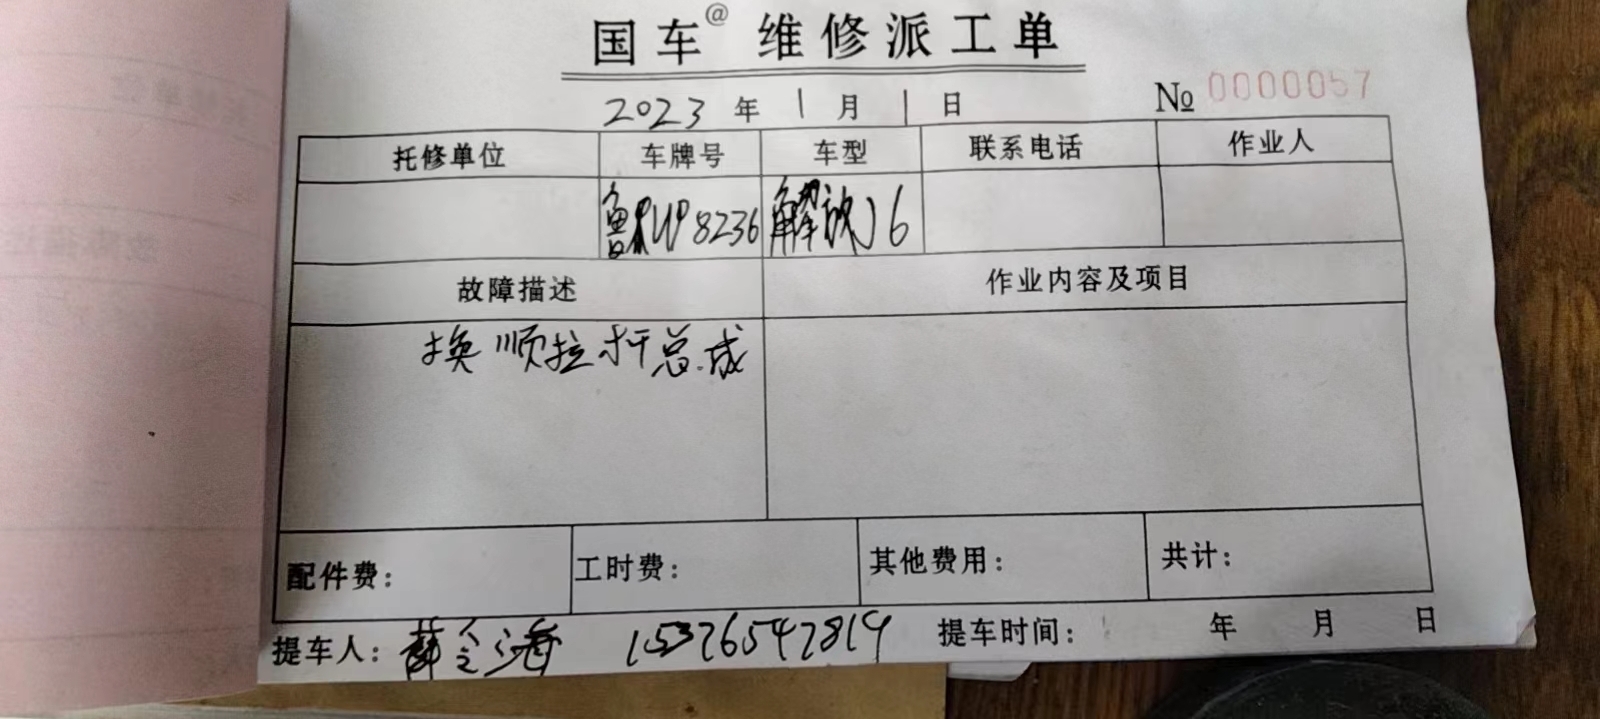 国车@ 维修派工单
2023 年 1 月 1 日 № 0000057
托修单位 车牌号 车型 联系电话 作业人
8236 解放J6
故障描述 作业内容及项目
换顺拉杆总成
配件费: 工时费: 其他费用: 共计:
提车人: 薛 海 15376547819 提车时间: 年 月 日